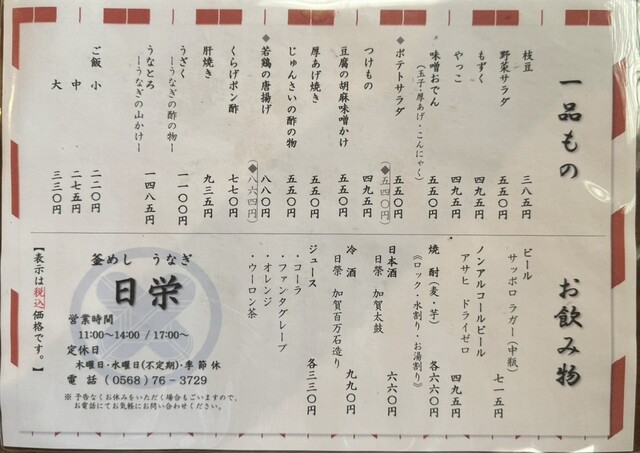 一品もの
枝豆 三八五円
野菜サラダ 五五〇円
もずく 四九五円
やっこ 四九五円
味噌おでん 五五〇円
(玉子・厚あげ・こんにゃく)
◆ポテトサラダ 五五〇円
(◆五四〇円)
つけもの 四九五円
豆腐の胡麻味噌かけ 五五〇円
厚あげ焼き 五五〇円
じゅんさいの酢の物 五五〇円
◆若鶏の唐揚げ 八八〇円
(◆八六四円)
くらげポン酢 七七〇円
肝焼き 九三五円
うざく 一一〇〇円
―うなぎの酢の物―
うなとろ 一四八五円
―うなぎの山かけ―
ご飯 小 二二〇円
中 二七五円
大 三三〇円
お飲み物
ビール
サッポロ ラガー(中瓶) 七一五円
ノンアルコールビール
アサヒ ドライゼロ 四九五円
焼酎(麦・芋) 各六六〇円
《ロック・水割り・お湯割り》
日本酒
日榮 加賀太鼓 六六〇円
冷酒
日榮 加賀百万石造り 九九〇円
ジュース 各三三〇円
・コーラ
・ファンタグレープ
・オレンジ
・ウーロン茶
釜めし うなぎ
日栄
営業時間
11:00~14:00 / 17:00~
定休日
木曜日・水曜日(不定期)・季節休
電話 (0568)76-3729
※予告なくお休みをいただく場合もございますので、
お電話にてお気軽にお問い合わせください。
【表示は税込価格です。】